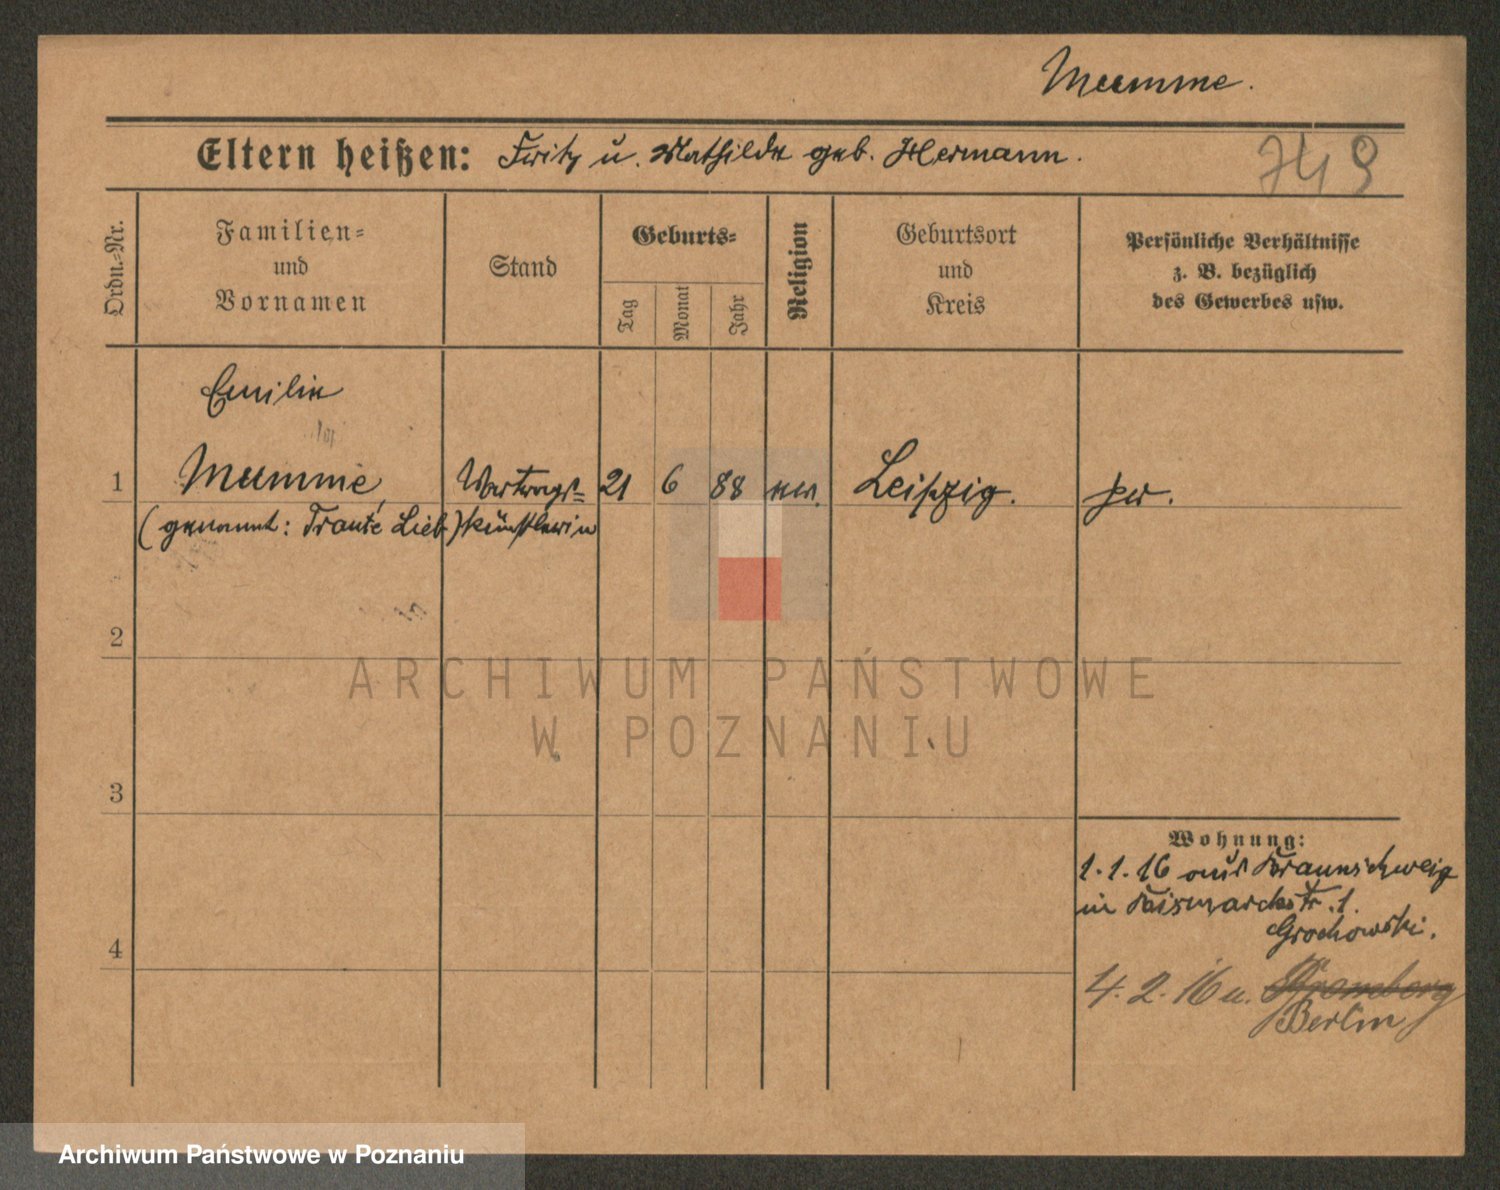 Mumme.
Eltern heißen: Fritz u. Mathilde geb. Hermann.
749
Ordn.-Nr.
Familien-
und
Vornamen
Stand
Geburts-
Tag
Monat
Jahr
Religion
Geburtsort
und
Kreis
Persönliche Verhältnisse
z. B. bezüglich
des Gewerbes usw.
Emilie
1 Mumme, Vortrags- 21 6 88 ev. Leipzig. led.
(genannt: Traute Lieb) künstlerin
2
3
4
Wohnung:
1.1.16 aus Braunschweig
in Bismarckstr. 1.
Grochowski.
4.2.16 n. Bromberg
Berlin
ARCHIWUM PAŃSTWOWE
W POZNANIU
Archiwum Państwowe w Poznaniu